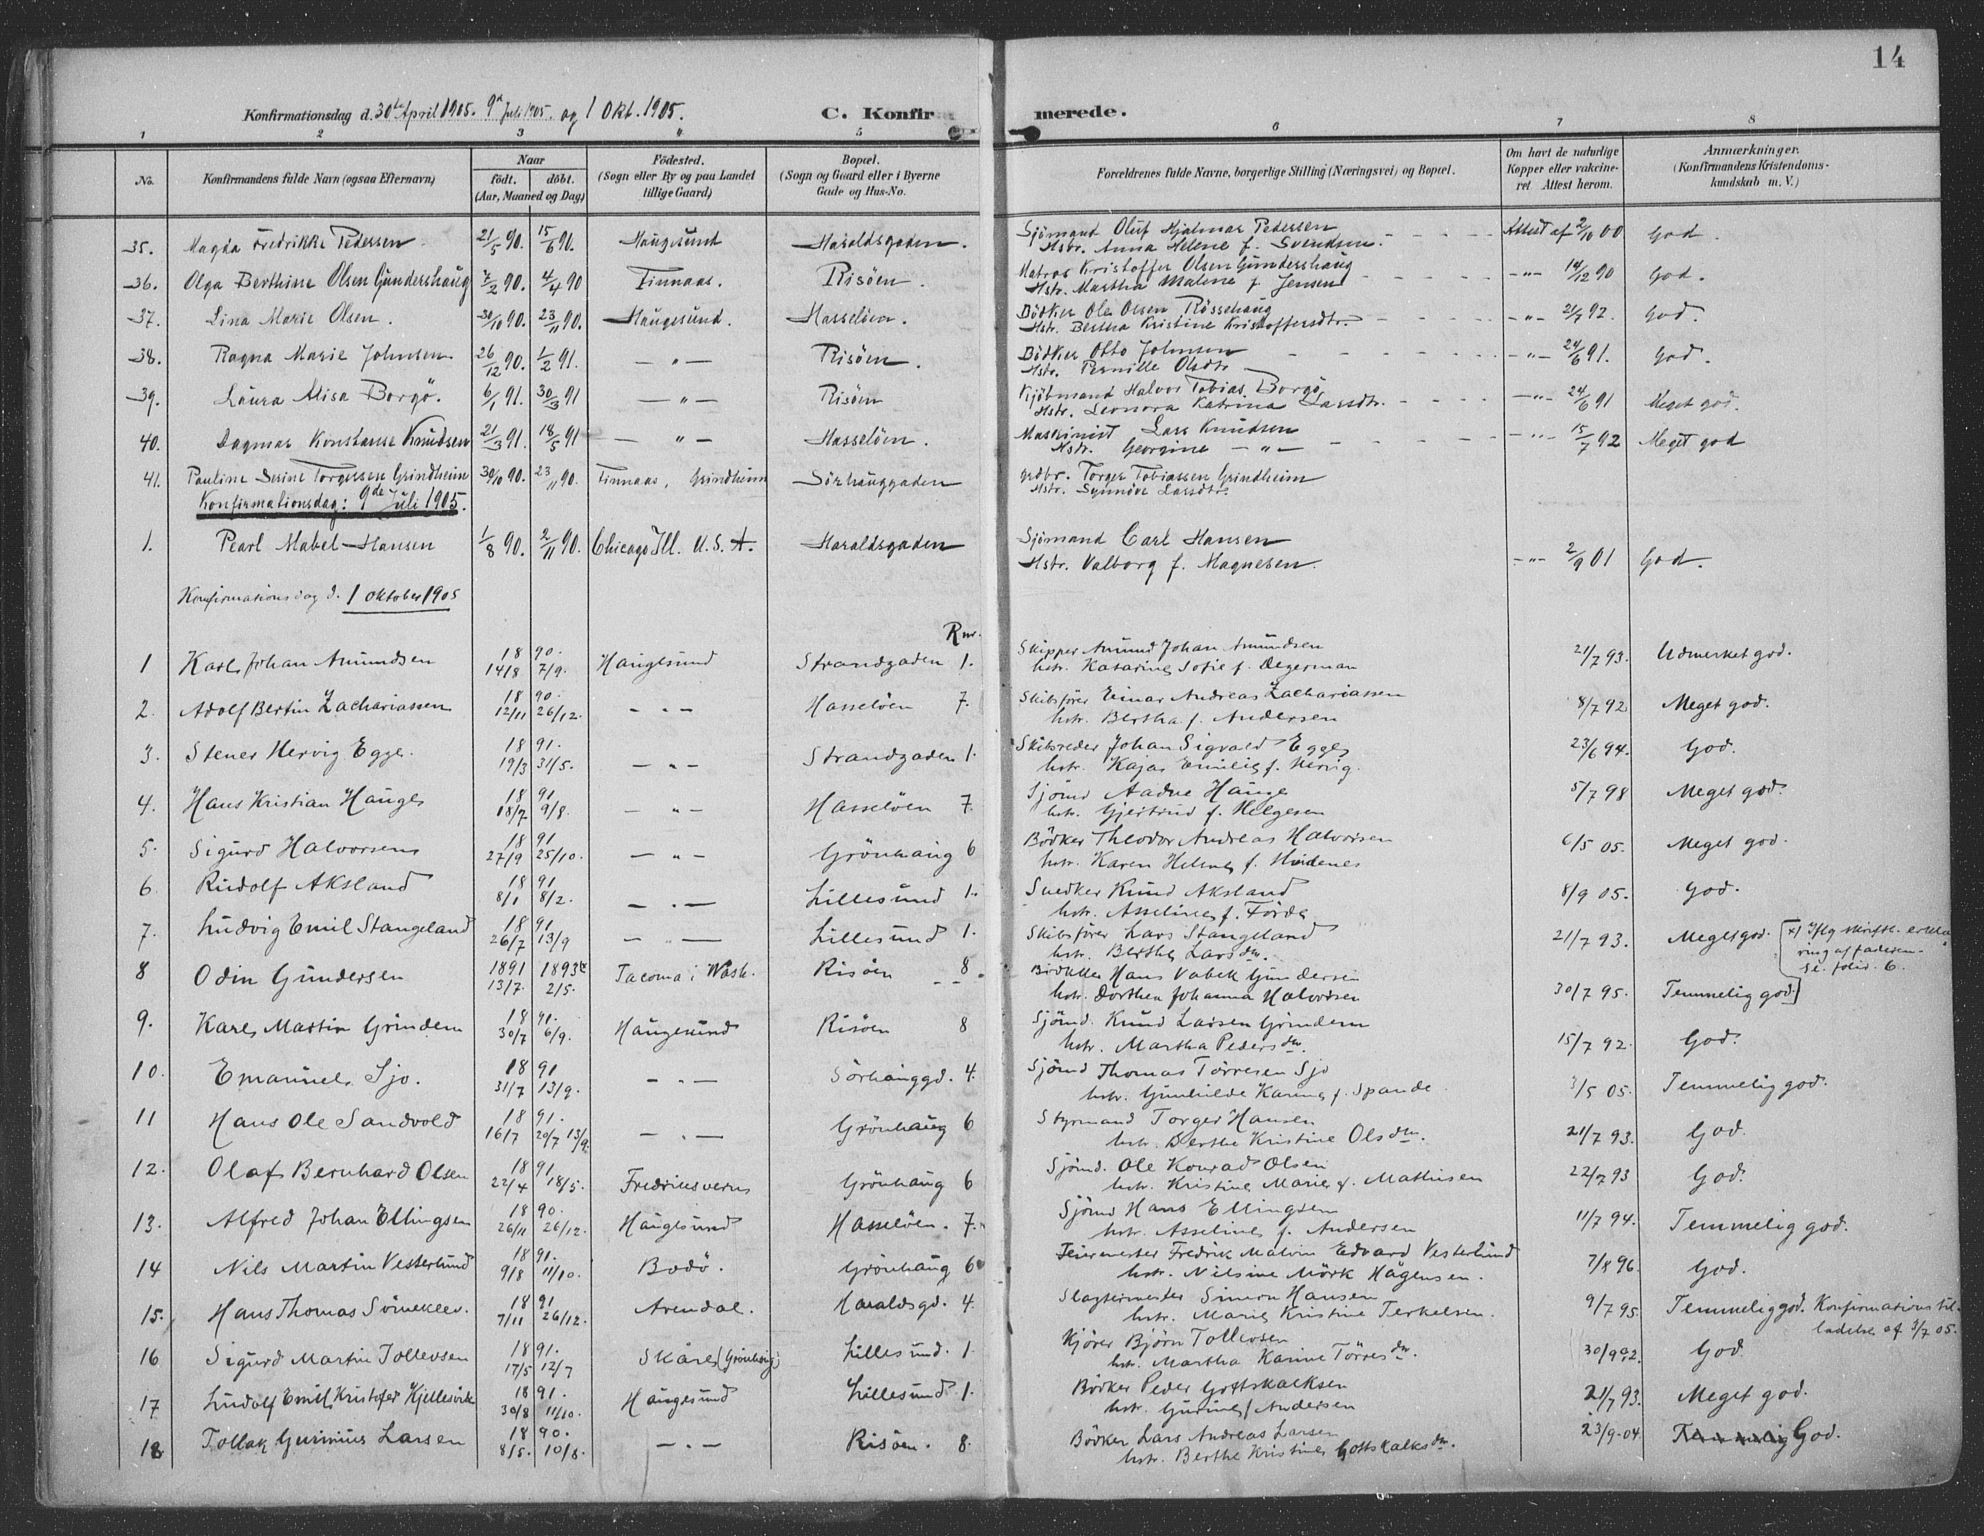 14
Konfirmationsdag d. 30te April 1905. 9de Juli 1905. og 1 Okt. 1905.
C. Konfirmerede.
1 2 3 " 5 6 7 8
No.
Konfirmandens fulde Navn (ogsaa Efternavn)
Naar
født. døbt.
(Aar, Maaned og Dag)
Födested.
(Sogn eller By og paa Landet
tillige Gaard)
Bopæl.
(Sogn og Gaard eller i Byerne
Gade og Hus-No.
Forældrenes fulde Navne, borgerlige Stilling (Næringsvei) og Bopæl.
Om havt de naturlige
Kopper eller vakcine-
ret Attest herom.
Anmærkninger.
(Konfirmandens Kristendoms-
kundskab m. V.)
35. Magda Fredrikke Pedersen 21/5 90. 15/6 90. Haugesund Haraldsgaden. Sjömand Oluf Hjalmar Pedersen Attest af 2/10 00 God.
Hstr. Anna Helene f. Svendsen.
36. Olga Berthine Olsen Gundershaug 7/2 90. 4/4 90 Finnaas. Risöen. Matros Kristoffer Olsen Gundershaug -"- 14/12 90 God.
Hstr. Martha Malene f. Jensen
37. Lina Marie Olsen. 30/10 90. 23/11 90. Haugesund. Hasselöen. Bödker Ole Olsen Rössehaug -"- 21/7 92. God.
Hstr. Bertha Kristine Kristoffersdtr.
38. Ragna Marie Johnsen 26/12 90. 1/2 91. -"- Risöen. Bödker Otto Johnsen -"- 24/6 91. God.
Hstr. Pernille Olsdtr.
39. Laura Alisa Borgö. 6/1 91. 30/3 91 -"- Risöen Kjöbmand Halvor Tobias Borgö -"- 24/6 91 Meget god.
Hstr. Leonora Katrina Larsdtr.
40. Dagmar Konstanse Knudsen 21/3 91. 18/5 91 -"- Hasselöen. Maskinist Lars Knudsen -"- 15/7 92 Meget god
Hstr. Georgine -"-
41. Pauline Serine Torgersen Grindheim 30/10 90. 23/11 90. Finnaas, Grindheim Sörhauggaden grdbr. Torger Tobiassen Grindheim
Hstr. Synnöve Larsdtr.
Konfirmationsdag: 9de Juli 1905.
1. Pearl Mabel Hansen 1/8 90. 2/11 90. Chicago Ill. U.S.A. Haraldsgaden Sjömand Carl Hansen
Hstr. Valborg f. Magnesen. -"- 2/9 01 God.
Konfirmationsdag d. 1 oktober 1905
Rnr.
1 Karl Johan Amundsen 18 90. 14/8 7/9. Haugesund Strandgaden 1. Skipper Amund Johan Amundsen 21/7 93. Udmerket god.
hstr. Katarine Sofie f. Degerman
2. Adolf Bertin Zachariassen 18 90. 12/11 26/12. -"- Hasselöen 7. Skibsförer Einar Andreas Zachariassen 8/7 92 Meget god.
hstr. Bertha f. Andersen
3. Stener Hervig Egge. 18 91. 19/3 31/5. -"- Strandgaden 1. Skibsreder Johan Sigvald Egge 23/6 94. God.
hstr. Kaja Emilie f. Hervig.
4. Hans Kristian Hauge 18 91 18/7 9/8. -"- Hasselöen 7. Sjömd Aadne Hauge 5/7 98 Meget god.
hstr. Gjertrud f. Helgesen
5. Sigurd Halvorsen 18 91 27/9 25/10. -"- Grönhaug 6 Bödker Theodor Andreas Halvorsen 6/5 05. Meget god.
hstr. Karen Helene f.
6. Rudolf Aksland 18 91 8/1 8/2. -"- Lillesund 1. Snedker Knud Aksland 8/9 05. God.
hstr. Asseline f. Förde
7. Ludvig Emil Stangeland 18 91 26/7 13/9 -"- Lillesund 1. Skibsförer Lars Stangeland 21/7 93. Meget god. x) Iflg skriftl. erklæ-
ring af faderen
se folio 6.
hstr. Berthe Larsdtr.
8 Odin Gundersen 1891 1893 13/7. 2/5. Tacoma i Wash. Risöen 8. Bödker Hans Vabek Gundersen
hstr. Dorthea Johanna Halvorsen 30/7 95. Temmelig god.
9. Karl Martin Grindem 18 91. 30/7 6/9. Haugesund Risöen 8 Sjömd. Knud Larsen Grindem 15/7 92. God.
hstr. Martha Pedersdtr.
10. Emanuel Sjo. 18 91 31/7 13/9. -"- Sörhauggd. 4. Sjömd Thomas Törresen Sjo 3/5 05. Temmelig god.
hstr. Gunhilde Karine f. Spande
11 Hans Ole Sandvold 18 91. 16/7 20/7 13/9. -"- Grönhaug 6 Styrmand Torger Hansen 21/7 93. God.
hstr. Berthe Kristine Olsdtr.
12. Olaf Bernhard Olsen 18 91 22/4 18/5. Fredriksvern Grönhaug 6 Sjömd. Ole Konrad Olsen 22/7 93 God.
hstr. Kristine Marie f. Mathisen
13. Alfred Johan Ellingsen 18 90. 26/11 26/12. Haugesund Hasselöen. 7. Sjömd Hans Ellingsen 11/7 94. Temmelig god.
hstr. Asseline f. Andersen
14 Nils Martin Vesterlund 18 91. 9/8 11/10. Bodö. Grönhaug 6 Feiermester Fredrik Malvin Edvard Vesterlund 7/8 96. God.
hstr. Nilsine Mörk Hågensen.
15. Hans Thomas Sömekleev. 18 91 7/11 26/12. Arendal. Haraldsgd. 4. Slagtermester Simon Hansen 9/7 95. Temmelig god. Konfirmationstil-
ladelse af 3/7 05.
hstr. Marie Kristine Terkelsen.
16 Sigurd Martin Tollevsen 18 91. 17/5 12/7 Skåre (Grönhaug) Lillesund. 1. Kjörer Björn Tollevsen 30/9 92. God.
hstr. Martha Karine Törresdtr.
17 Ludolf Emil Kristofer Kjellesvik 18 91. 30/8 11/10. Haugesund Lillesund 1. Bödker Peder Gottskalksen 21/7 93. Meget god.
hstr. Gurine f. Andersen
18 Tollak Gurinius Larsen 18 90. 8/5. 10/8. -"- Risöen. 8. Bödker Lars Andreas Larsen 23/9-04. God.
hstr. Berthe Kristine Gottskalksdtr.